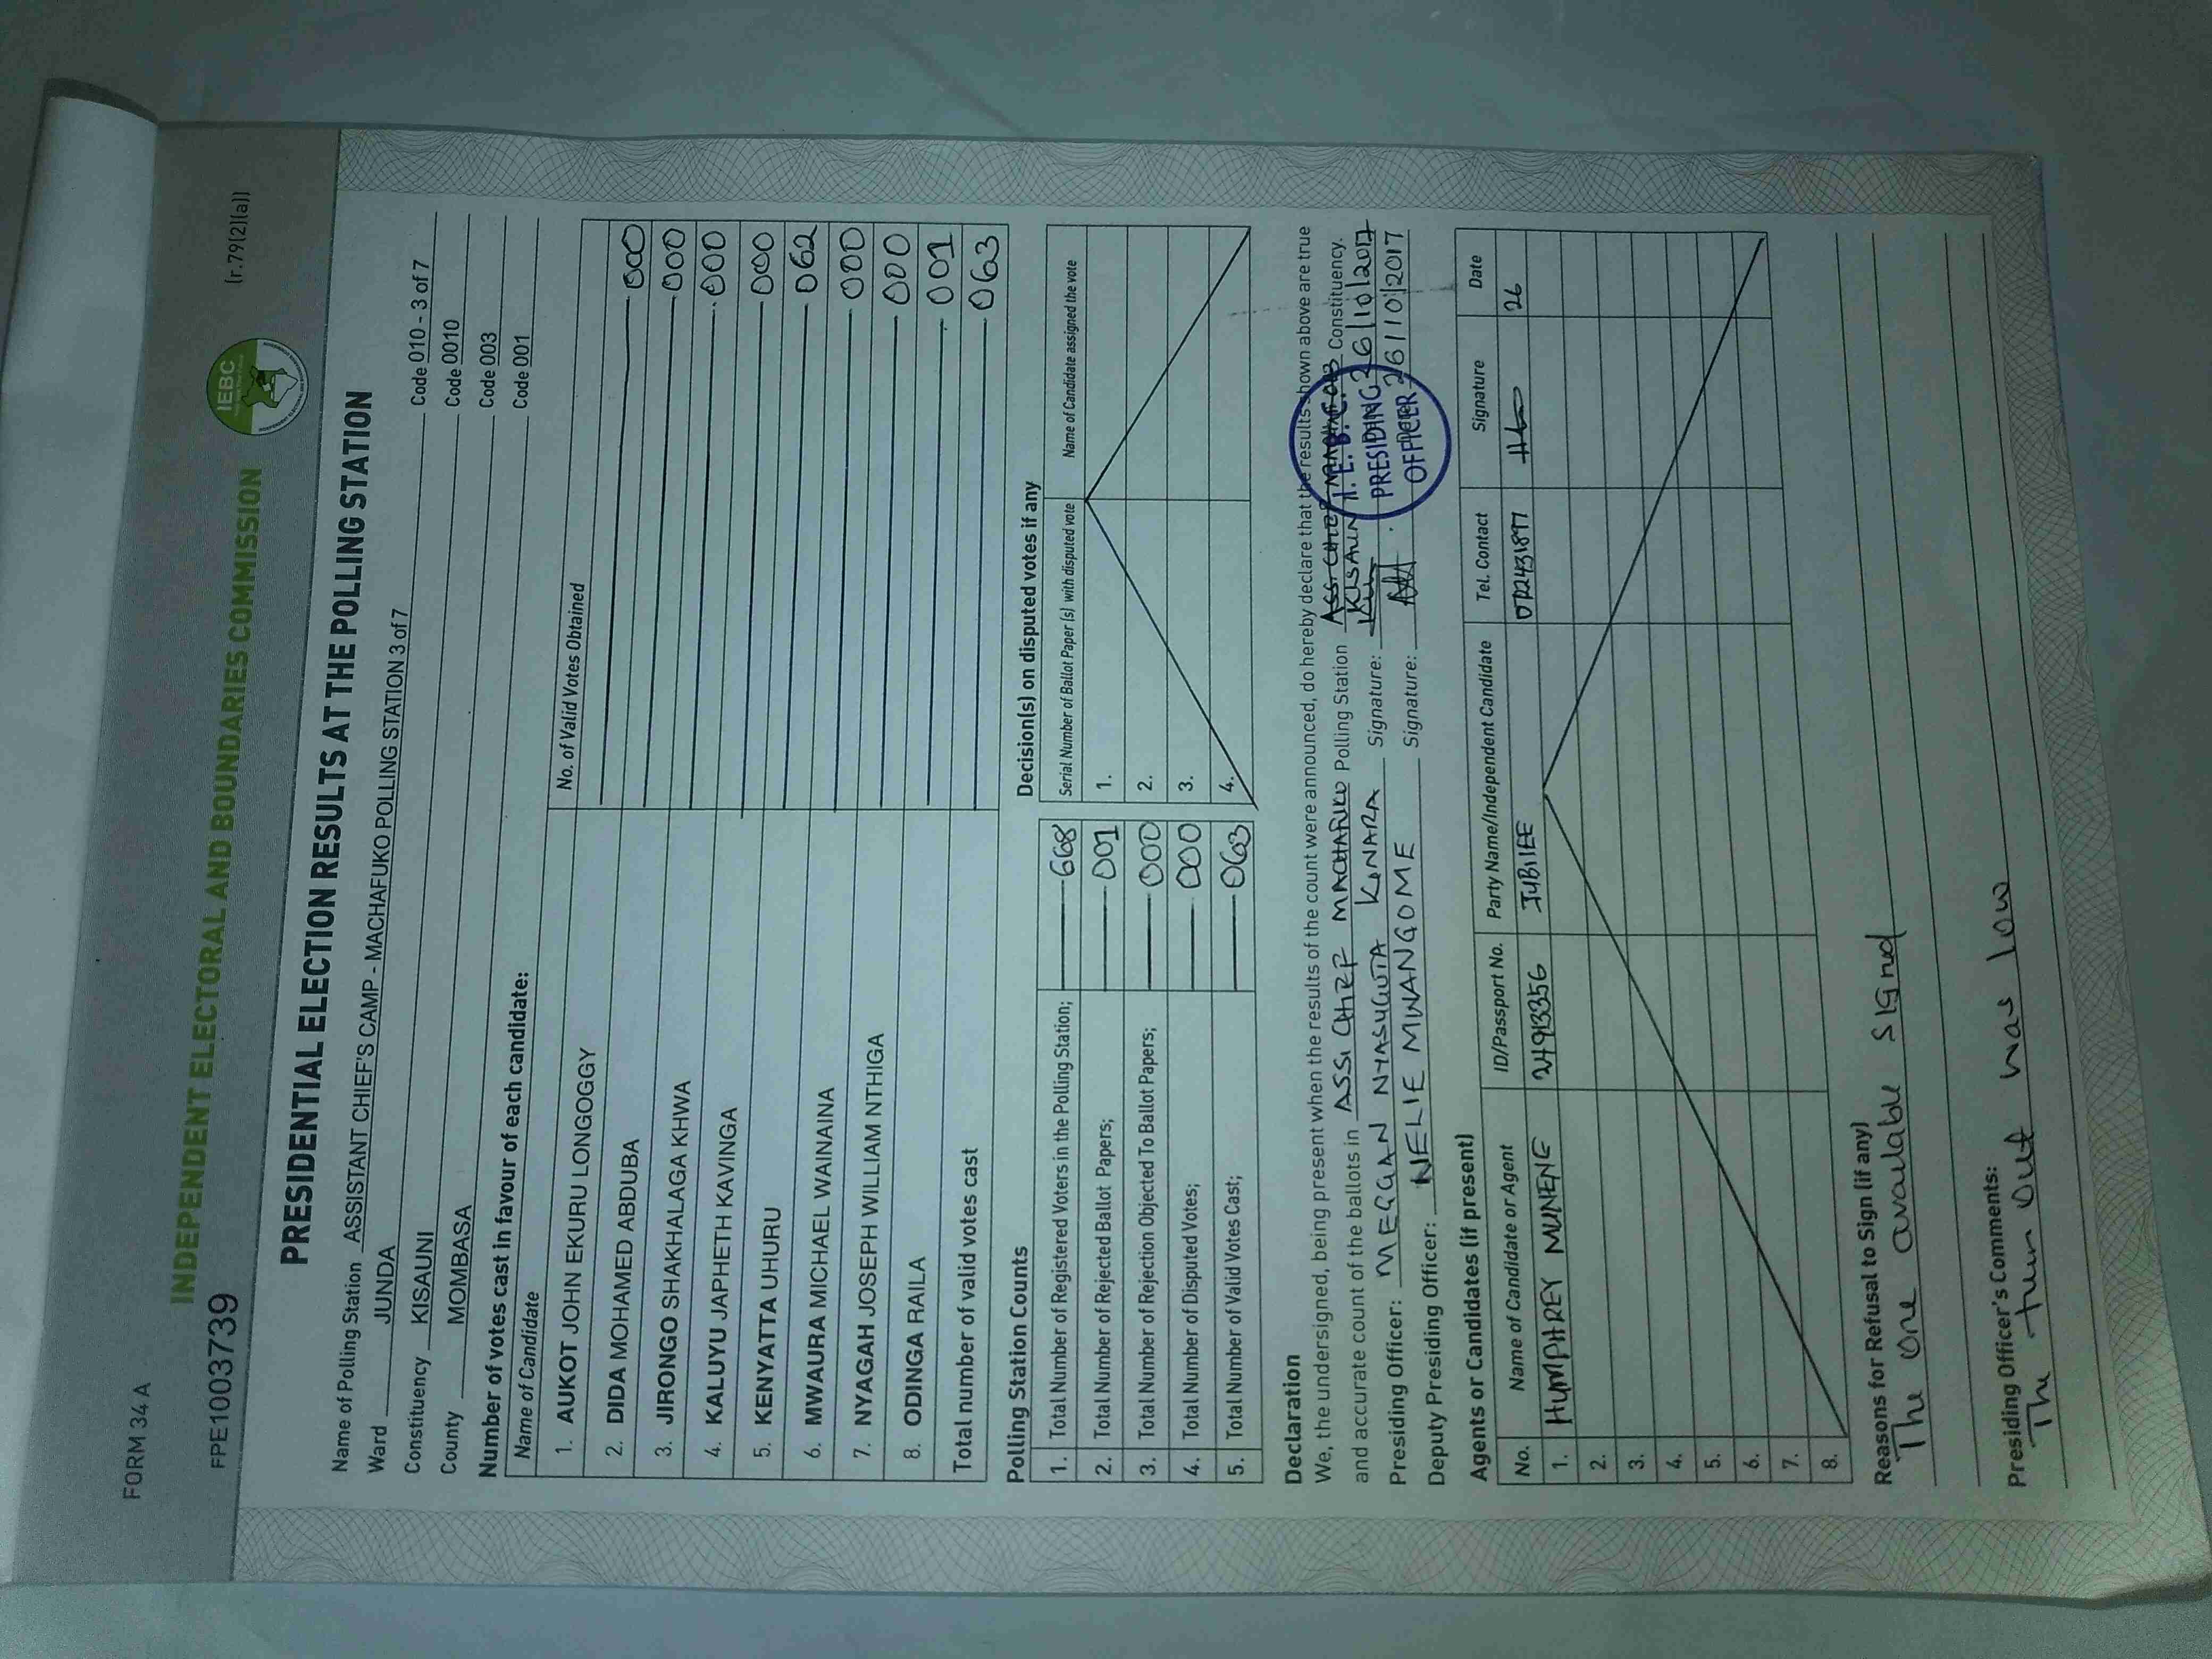 FORM 34 A
(r.79(2)(a))
INDEPENDENT ELECTORAL AND BOUNDARIES COMMISSION
IEBC
FPE1003739
PRESIDENTIAL ELECTION RESULTS AT THE POLLING STATION
Name of Polling Station ASSISTANT CHIEF'S CAMP - MACHAFUKO POLLING STATION 3 of 7 Code 010 - 3 of 7
Ward JUNDA Code 0010
Constituency KISAUNI Code 003
County MOMBASA Code 001
Number of votes cast in favour of each candidate:
Name of Candidate No. of Valid Votes Obtained
1. AUKOT JOHN EKURU LONGOGGY 000
2. DIDA MOHAMED ABDUBA 000
3. JIRONGO SHAKHALAGA KHWA 000
4. KALUYU JAPHETH KAVINGA 000
5. KENYATTA UHURU 062
6. MWAURA MICHAEL WAINAINA 000
7. NYAGAH JOSEPH WILLIAM NTHIGA 000
8. ODINGA RAILA 001
Total number of valid votes cast 063
Polling Station Counts
1. Total Number of Registered Voters in the Polling Station; 668
2. Total Number of Rejected Ballot Papers; 001
3. Total Number of Rejection Objected To Ballot Papers; 000
4. Total Number of Disputed Votes; 000
5. Total Number of Valid Votes Cast; 063
Decision(s) on disputed votes if any
Serial Number of Ballot Paper (s) with disputed vote Name of Candidate assigned the vote
1.
2.
3.
4.
Declaration
We, the undersigned, being present when the results of the count were announced, do hereby declare that the results shown above are true
and accurate count of the ballots in ASS. CHIEF MACHAFUKO Polling Station KISAUNI Constituency.
Presiding Officer: MEGGAN NYASUGUTA KINARA Signature: 26/10/2017
Deputy Presiding Officer: NELIE MWANGOME Signature: 26/10/2017
I.E.B.C.
PRESIDING
OFFICER
Agents or Candidates (if present)
No. Name of Candidate or Agent ID/Passport No. Party Name/Independent Candidate Tel. Contact Signature Date
1. HUMPHREY MUNENE 24913356 JUBILEE 0724431897 26
2.
3.
4.
5.
6.
7.
8.
Reasons for Refusal to Sign (if any)
The one available signed
Presiding Officer's Comments:
The turn out was low